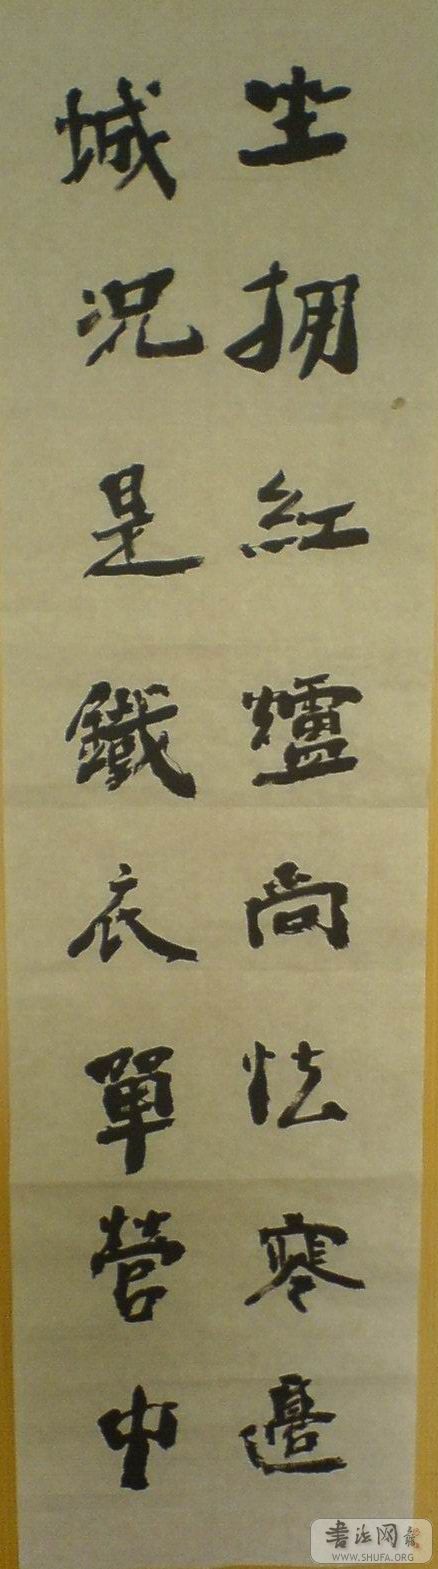 坐拥紅爐尚怯寒邊
城况是鐵衣單營中
書法网
WWW.SHUFA.ORG